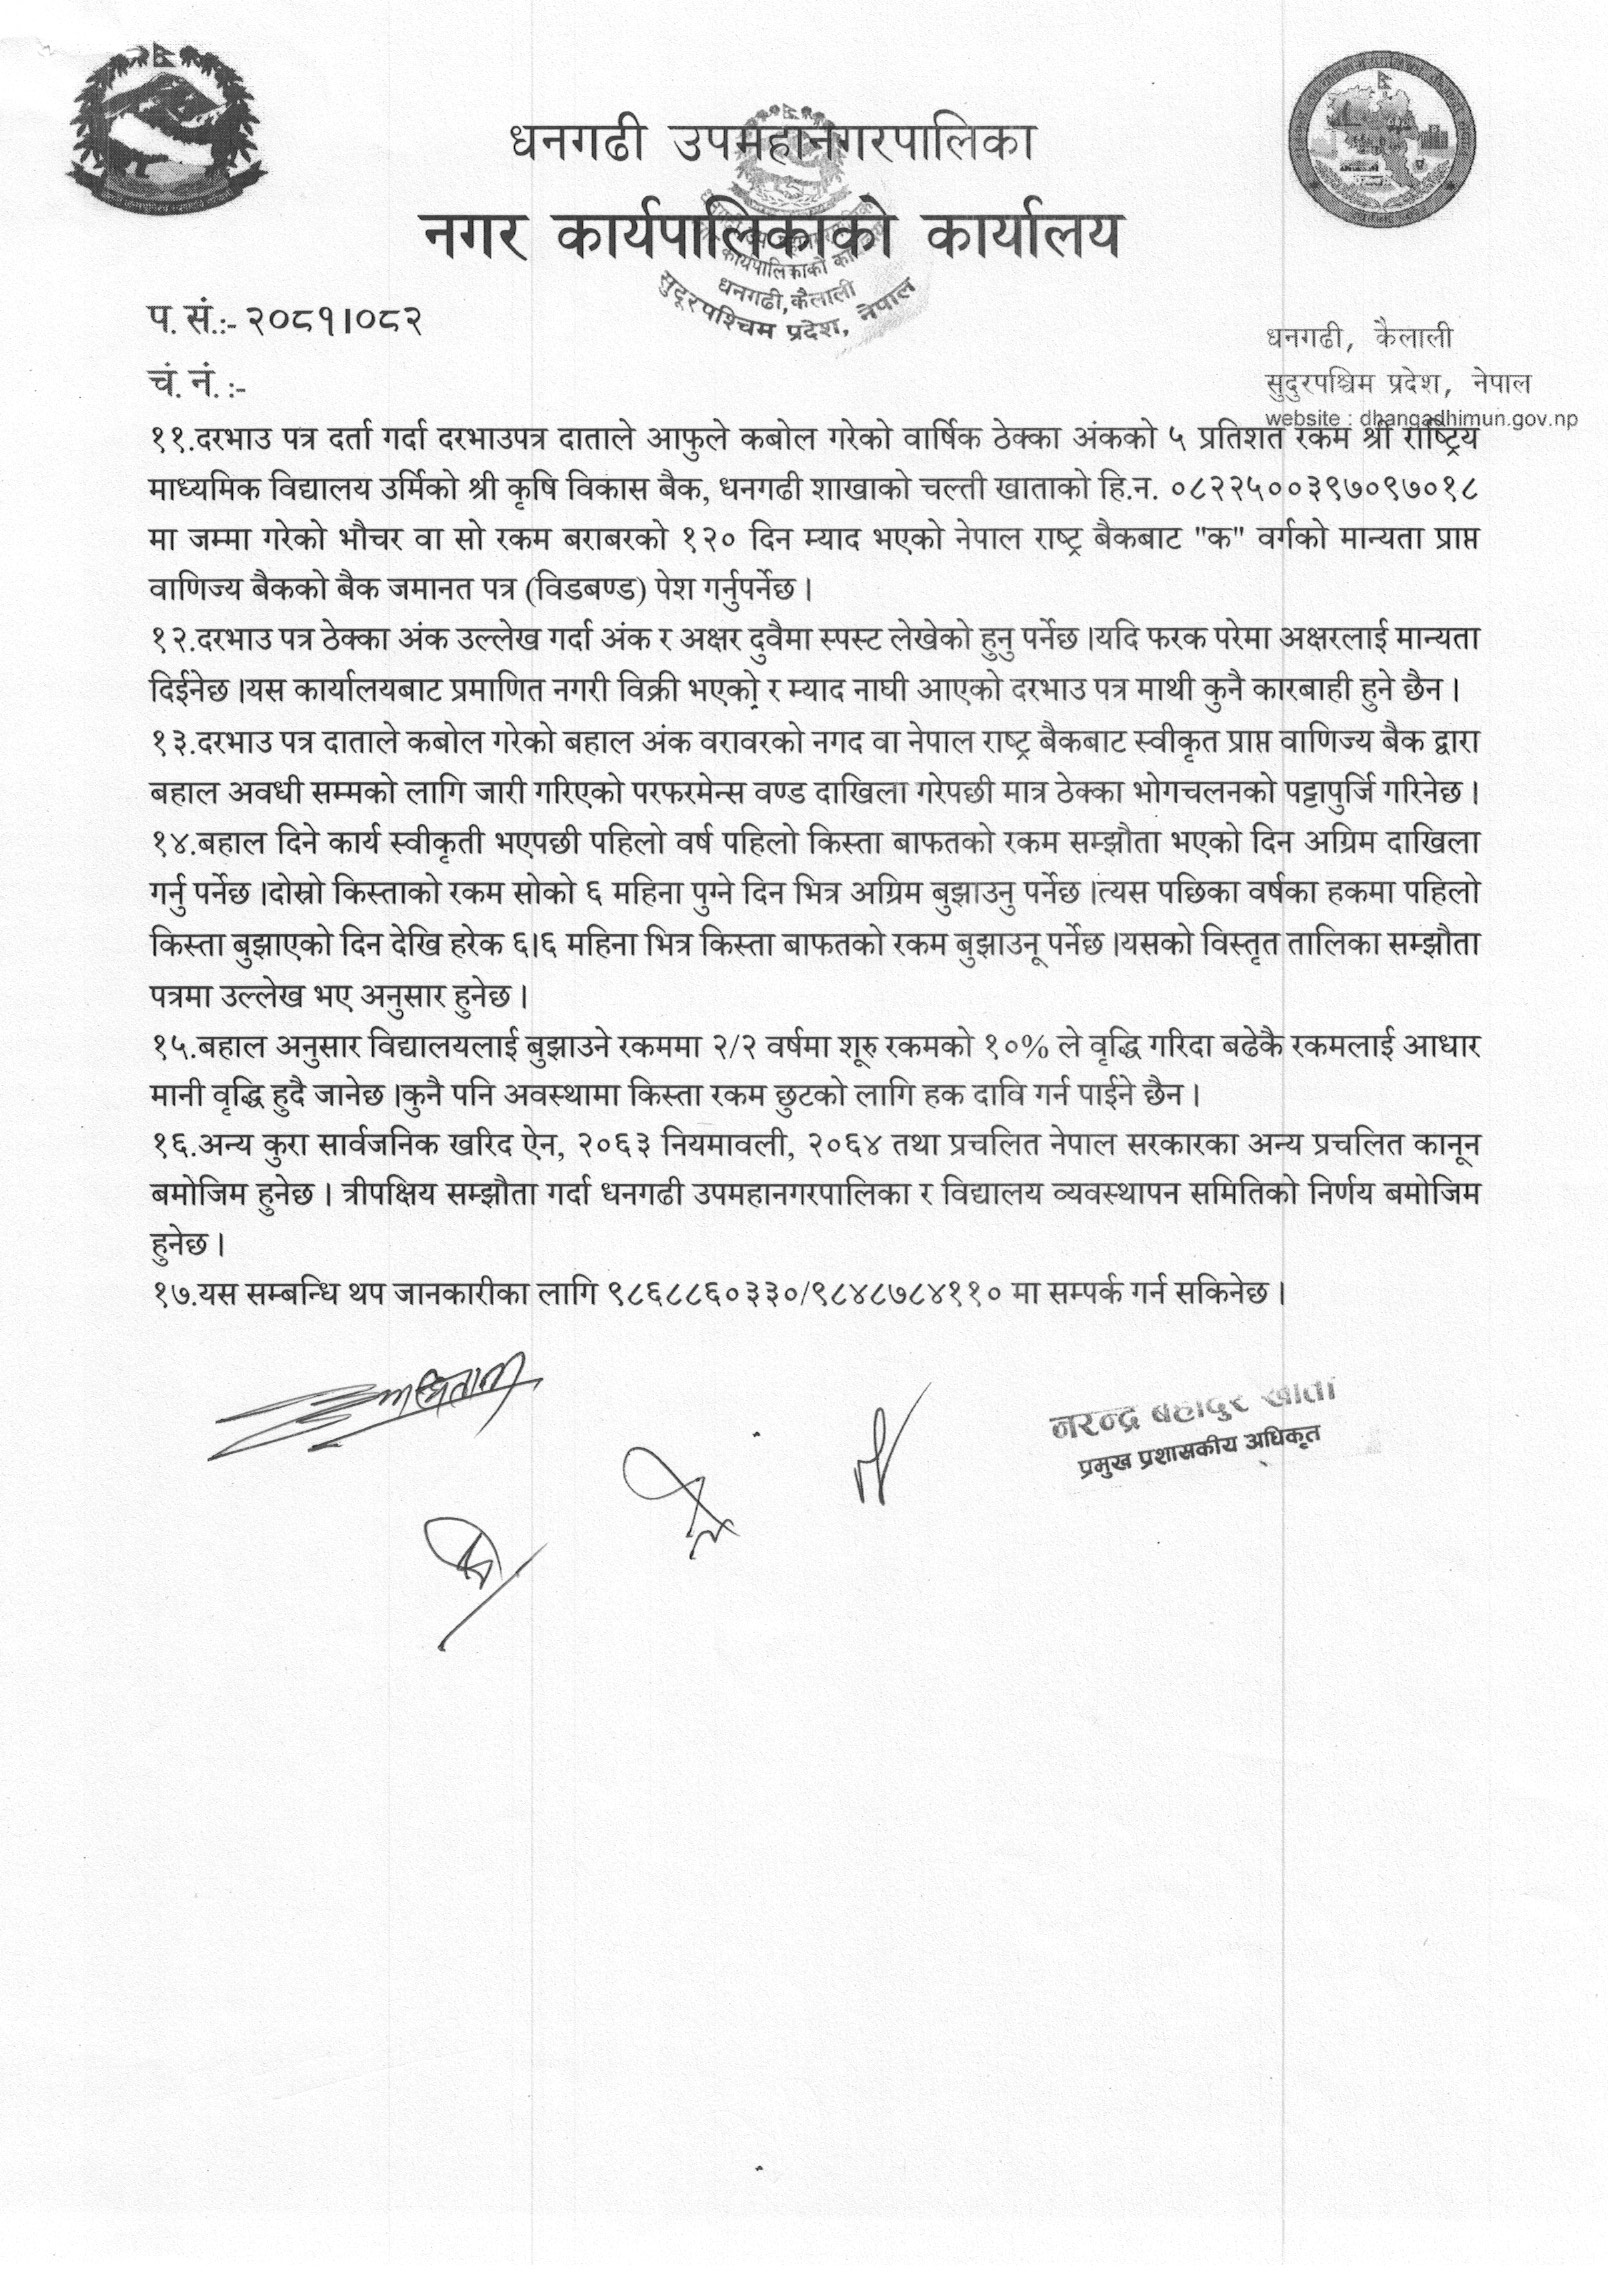 धनगढी उपमहानगरपालिका
नगर कार्यपालिकाको कार्यालय
कार्यपालिकाको
धनगढी, कैलाली
सुदूरपश्चिम प्रदेश, नेपाल
प. सं.:- २०८१।०८२
धनगढी, कैलाली
चं. नं. :-
सुदुरपश्चिम प्रदेश, नेपाल
website : dhangadhimun.gov.np
११.दरभाउ पत्र दर्ता गर्दा दरभाउपत्र दाताले आफुले कबोल गरेको वार्षिक ठेक्का अंकको ५ प्रतिशत रकम श्री राष्ट्रिय
माध्यमिक विद्यालय उर्मिको श्री कृषि विकास बैक, धनगढी शाखाको चल्ती खाताको हि.न. ०८२२५००३९७०९७०१८
मा जम्मा गरेको भौचर वा सो रकम बराबरको १२० दिन म्याद भएको नेपाल राष्ट्र बैकबाट "क" वर्गको मान्यता प्राप्त
वाणिज्य बैकको बैक जमानत पत्र (विडबण्ड) पेश गर्नुपर्नेछ ।
१२.दरभाउ पत्र ठेक्का अंक उल्लेख गर्दा अंक र अक्षर दुवैमा स्पस्ट लेखेको हुनु पर्नेछ ।यदि फरक परेमा अक्षरलाई मान्यता
दिईनेछ ।यस कार्यालयबाट प्रमाणित नगरी विक्री भएको र म्याद नाघी आएको दरभाउ पत्र माथी कुनै कारबाही हुने छैन ।
१३.दरभाउ पत्र दाताले कबोल गरेको बहाल अंक वरावरको नगद वा नेपाल राष्ट्र बैकबाट स्वीकृत प्राप्त वाणिज्य बैक द्वारा
बहाल अवधी सम्मको लागि जारी गरिएको परफरमेन्स वण्ड दाखिला गरेपछी मात्र ठेक्का भोगचलनको पट्टापुर्जि गरिनेछ ।
१४.बहाल दिने कार्य स्वीकृती भएपछी पहिलो वर्ष पहिलो किस्ता बाफतको रकम सम्झौता भएको दिन अग्रिम दाखिला
गर्नु पर्नेछ ।दोस्रो किस्ताको रकम सोको ६ महिना पुग्ने दिन भित्र अग्रिम बुझाउनु पर्नेछ ।त्यस पछिका वर्षका हकमा पहिलो
किस्ता बुझाएको दिन देखि हरेक ६।६ महिना भित्र किस्ता बाफतको रकम बुझाउनू पर्नेछ ।यसको विस्तृत तालिका सम्झौता
पत्रमा उल्लेख भए अनुसार हुनेछ ।
१५.बहाल अनुसार विद्यालयलाई बुझाउने रकममा २/२ वर्षमा शूरु रकमको १०% ले वृद्धि गरिदा बढेकै रकमलाई आधार
मानी वृद्धि हुदै जानेछ ।कुनै पनि अवस्थामा किस्ता रकम छुटको लागि हक दावि गर्न पाईने छैन ।
१६.अन्य कुरा सार्वजनिक खरिद ऐन, २०६३ नियमावली, २०६४ तथा प्रचलित नेपाल सरकारका अन्य प्रचलित कानून
बमोजिम हुनेछ । त्रीपक्षिय सम्झौता गर्दा धनगढी उपमहानगरपालिका र विद्यालय व्यवस्थापन समितिको निर्णय बमोजिम
हुनेछ ।
१७.यस सम्बन्धि थप जानकारीका लागि ९८६८८६०३३०/९८४८७८४११० मा सम्पर्क गर्न सकिनेछ ।
नरेन्द्र बहादुर खाती
प्रमुख प्रशासकीय अधिकृत